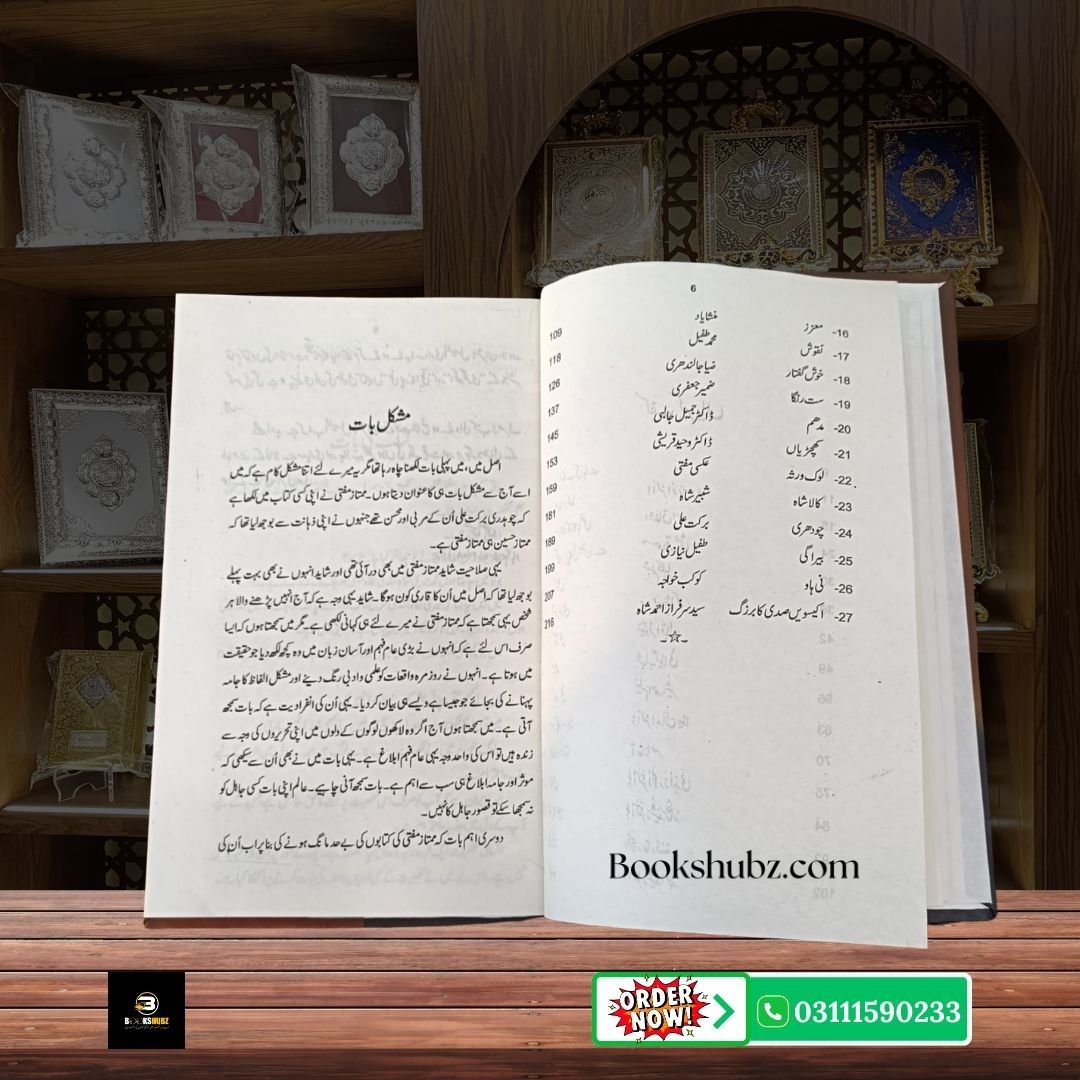 6
16- معزز منشایاد 109
17- نقوش محمد طفیل 118
18- خوش گفتار ضیا جالندھری 126
19- ست رنگا ضمیر جعفری 137
20- مدھم ڈاکٹر جمیل جالبی 145
21- کھچڑیاں ڈاکٹر وحید قریشی 153
22- لوک ورثہ عکسی مفتی 159
23- کالا شاہ شبیر شاہ 181
24- چودھری برکت علی 189
25- بیراگی طفیل نیازی 199
26- نی ہاد کوکب خواجہ 207
27- اکیسویں صدی کا بزرگ سید سرفراز احمد شاہ 216
-☆-
مشکل بات
اصل میں، میں پہلی بات لکھنا چاہ رہا تھا مگر یہ میرے لئے اتنا مشکل کام ہے کہ میں
اسے آج سے مشکل بات ہی کا عنوان دیتا ہوں۔ ممتاز مفتی نے اپنی کسی کتاب میں لکھا ہے
کہ چوہدری برکت علی اُن کے مربی اور محسن تھے جنہوں نے اپنی ذہانت سے بوجھ لیا تھا کہ
ممتاز حسین ہی ممتاز مفتی ہے۔
یہی صلاحیت شاید ممتاز مفتی میں بھی در آئی تھی اور شاید انہوں نے بھی بہت پہلے
بوجھ لیا تھا کہ اصل میں اُن کا قاری کون ہوگا۔ شاید یہی وجہ ہے کہ آج انہیں پڑھنے والا ہر
شخص یہی سمجھتا ہے کہ ممتاز مفتی نے میرے لئے ہی کہانی لکھی ہے۔ مگر میں سمجھتا ہوں کہ ایسا
صرف اس لئے ہے کہ انہوں نے بڑی عام فہم اور آسان زبان میں وہ کچھ لکھ دیا جو حقیقت
میں ہوتا ہے۔ انہوں نے روزمرہ واقعات کو علمی و ادبی رنگ دینے اور مشکل الفاظ کا جامہ
پہنانے کی بجائے جو جیسا ہے ویسے ہی بیان کر دیا۔ یہی اُن کی انفرادیت ہے کہ بات سمجھ
آتی ہے۔ میں سمجھتا ہوں آج اگر وہ لاکھوں لوگوں کے دلوں میں اپنی تحریروں کی وجہ سے
زندہ ہیں تو اس کی واحد وجہ یہی عام فہم ابلاغ ہے۔ یہی بات میں نے بھی اُن سے سیکھی کہ
موثر اور جامہ ابلاغ ہی سب سے اہم ہے۔ بات سمجھ آنی چاہیے۔ عالم اپنی بات کسی جاہل کو
نہ سمجھا سکے تو قصور جاہل کا نہیں۔
دوسری اہم بات کہ ممتاز مفتی کی کتابوں کی بے حد مانگ ہونے کی بنا پر اب اُن کی
Bookshubz.com
BOOKSHUBZ
ORDER NOW!
03111590233